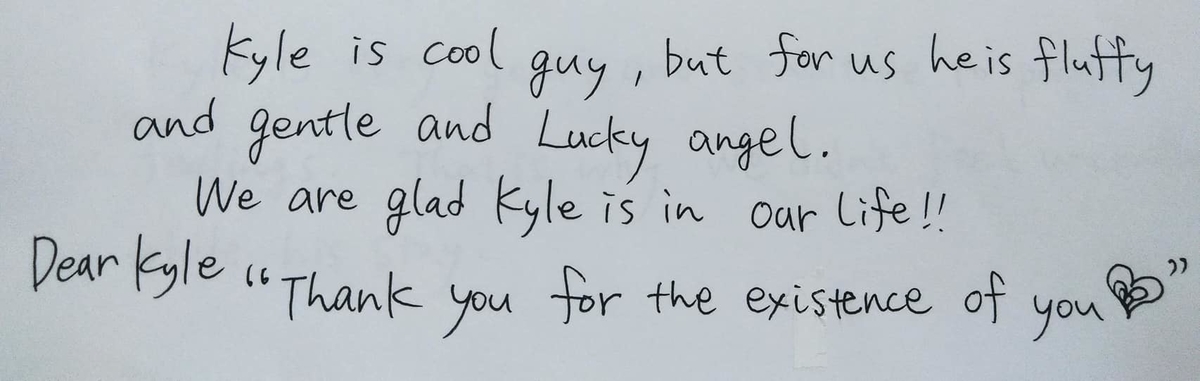 Kyle is cool guy, but for us he is fluffy
and gentle and Lucky angel.
We are glad Kyle is in our Life!!
Dear Kyle "Thank you for the existence of you♡"